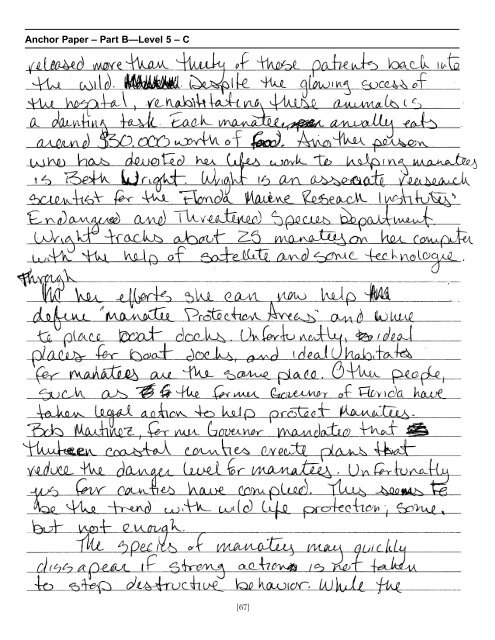 Anchor Paper – Part B—Level 5 – C
released more than thirty of those patients back into
the wild. Despite the glowing sucess of
the hospital, rehabilitating these animals is
a daunting task. Each manatee anually eats
around $30,000 worth of food. Another person
who has devoted her lifes work to helping manatees
is Beth Wright. Wright is an associate reaseach
scientist for the Florida Marine Reseach Institutes'
Endangered and Threatened Species Department.
Wright tracks about 25 manatees on her computer
with the help of satellite and sonic technologie.
Through
her efforts she can now help
define "manatee Protection Areas" and where
to place boat docks. Unfortunatly, ideal
places for boat docks, and ideal habitats
for manatees are the same place. Other people,
such as the former Governor of Florida have
taken legal action to help protect Manatees.
Bob Martinez, former Governor mandated that
thirteen coastal counties create plans that
reduce the danger level for manatees. Unfortunatly
few counties have complied. This seems to
be the trend with wild life protection; some,
but not enough.
The species of manatees may quickly
dissapear if strong action is not taken
to stop destructive behavior. While the
[67]